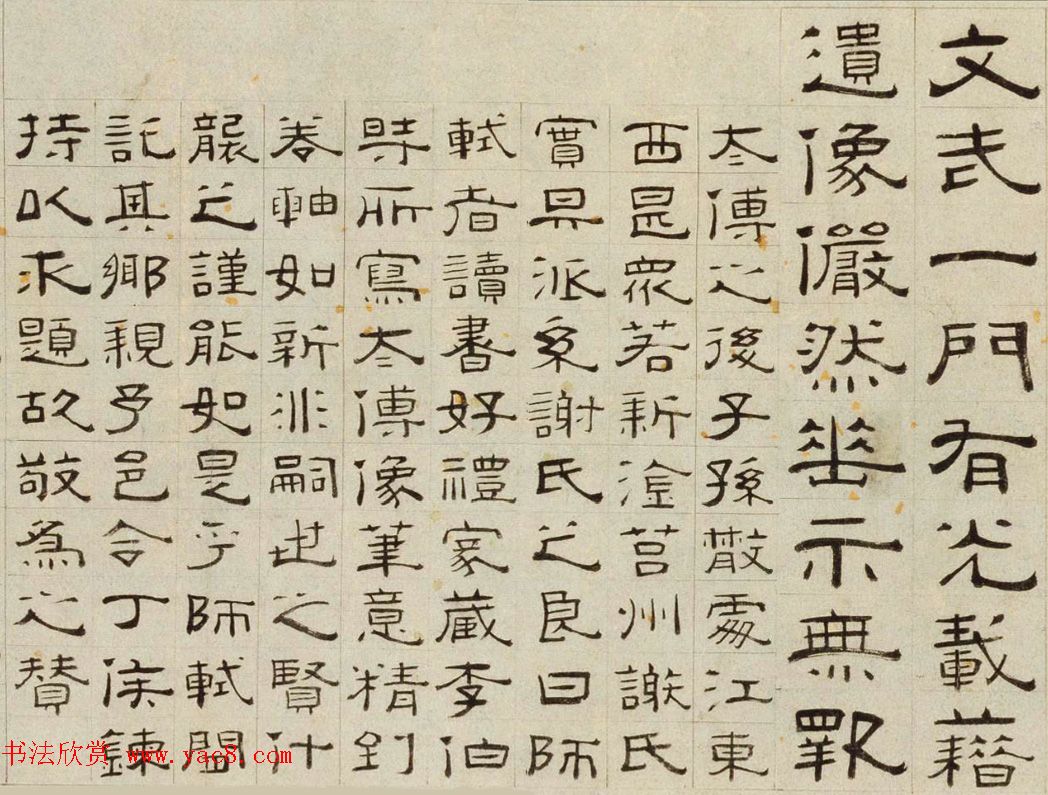 文武一門有光載藉
遺像儼然垂示無斁
太傅之後子孫散處江東
西甚眾若新淦莒州謝氏
實其派系謝氏之良曰師
軾者讀書好禮家藏李伯
時所寫太傅像筆意精到
卷軸如新非嗣世之賢什
襲之謹能如是乎師軾聞
託其鄉親予邑令丁侯鍊
持以求題故敬為之贊
书法欣赏 www.yac8.com